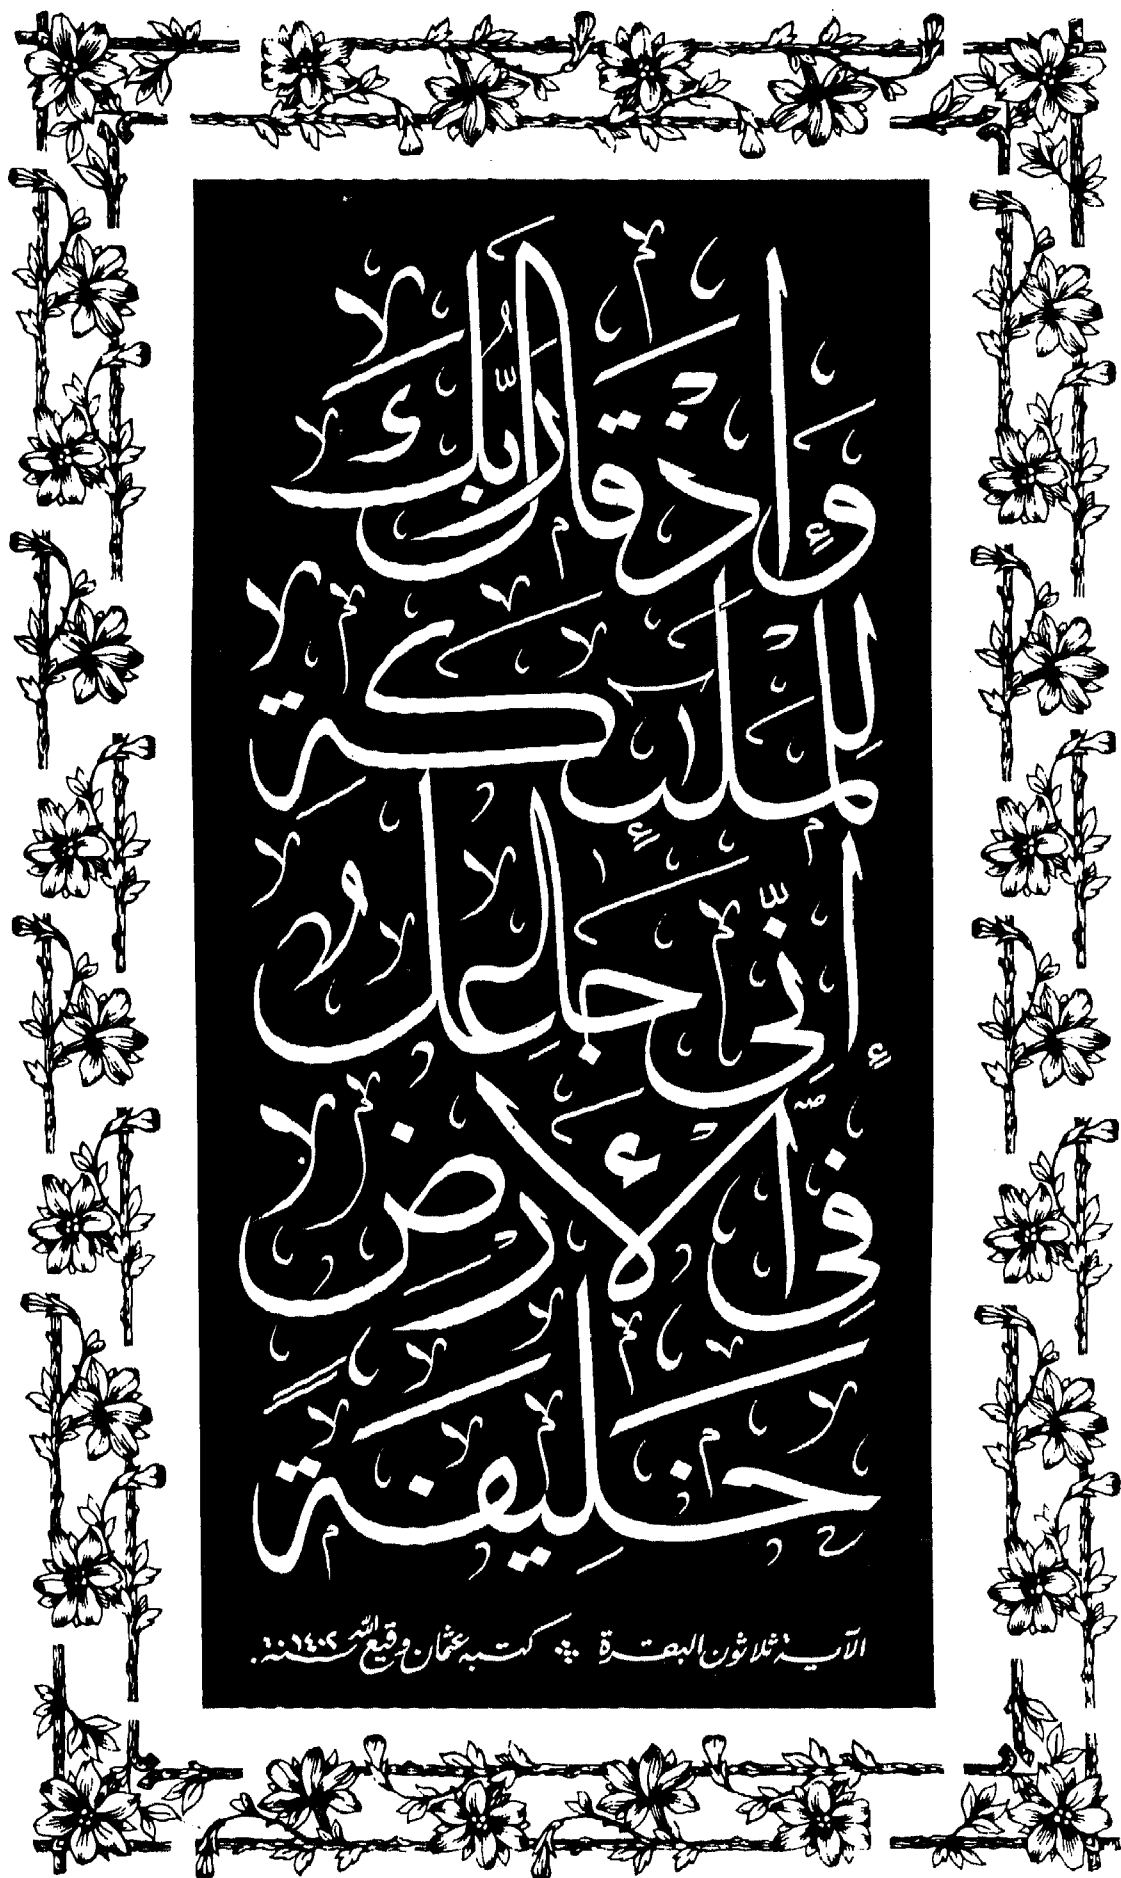 وَإِذْ قَالَ رَبُّكَ
لِلْمَلَٰٓئِكَةِ
إِنِّي جَاعِلٌ
فِي الْأَرْضِ
خَلِيفَةً
الآية ثلاثون البقرة كتبه عثمان وقيع الله سنة ١٤٠٢